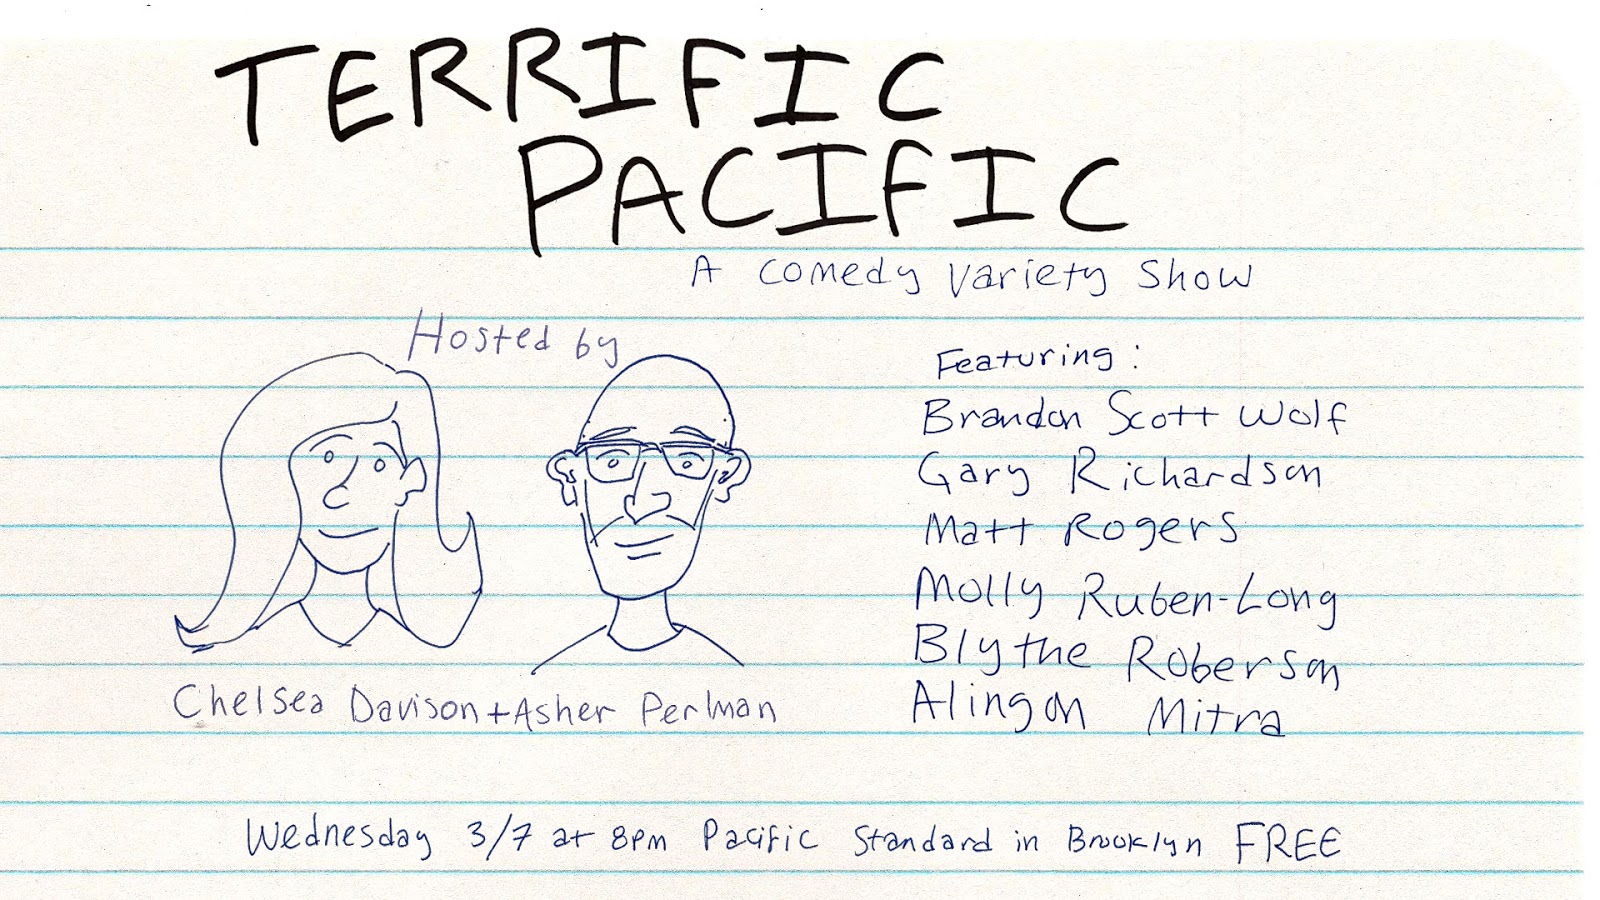 TERRIFIC
PACIFIC
A Comedy Variety Show
Hosted by
Chelsea Davison + Asher Perlman
Featuring:
Brandon Scott Wolf
Gary Richardson
Matt Rogers
Molly Ruben-Long
Blythe Roberson
Alingon Mitra
Wednesday 3/7 at 8pm Pacific Standard in Brooklyn FREE